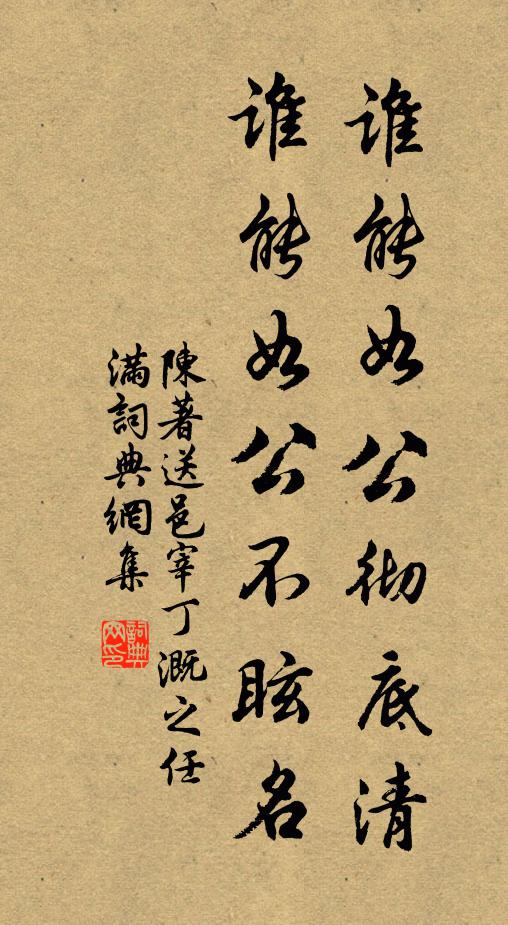 谁能如公彻底清
谁能如公不眩名
陳著送邑宰丁溉之任
满詞典網集
詞典网印